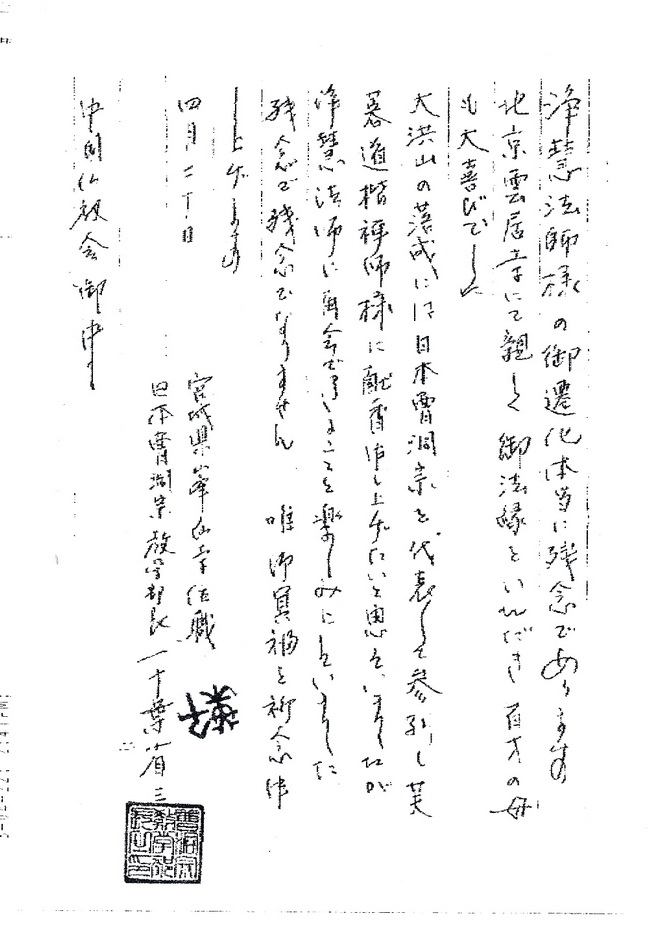 浄慧法師様の御遷化本当に残念であります
北京雲居寺にて親しく御法縁をいただき百才の母
も大喜びでした
大洪山の落成には日本曹洞宗を代表して参列し芙
蓉道楷禅師様に献香申し上げたいと思っていましたが
浄慧法師に再会できることを楽しみにしていました
残念で残念でなりません 唯御冥福を祈念申
し上げます
四月二十日
宮城県峯仙寺住職
日本曹洞宗教学部長 千葉省三
曹洞宗教学部長之印
中国仏教会御中